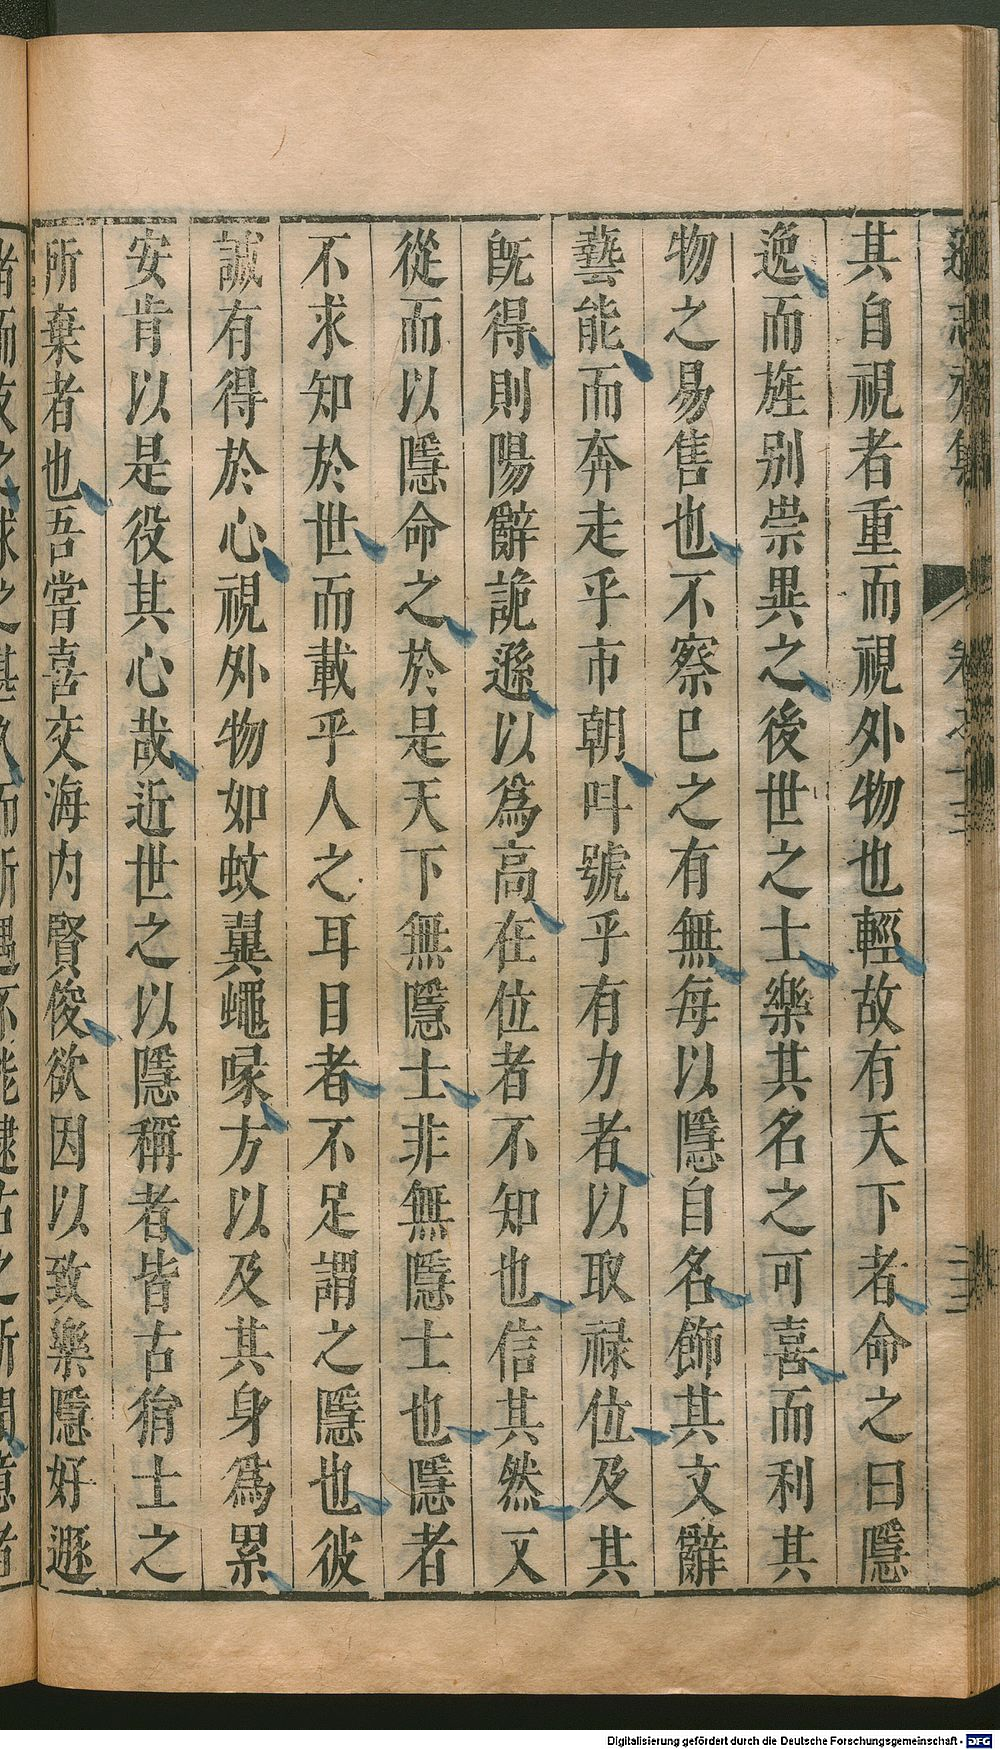 其自視者重而視外物也輕故有天下者命之曰隱
逸而旌別崇異之後世之士樂其名之可喜而利其
物之易售也不察已之有無每以隱自名飾其文辭
藝能而奔走乎市朝呌號乎有力者以取祿位及其
旣得則陽辭詭遜以爲高在位者不知也信其然又
從而以隱命之於是天下無隱士非無隱士也隱者
不求知於世而載乎人之耳目者不足謂之隱也彼
誠有得於心視外物如蚊翼蠅喙方以及其身爲累
安肯以是役其心哉近世之以隱稱者皆古狷士之
所棄者也吾嘗喜交海內賢俊欲因以致樂隱好遯
Digitalisierung gefördert durch die Deutsche Forschungsgemeinschaft - DFG